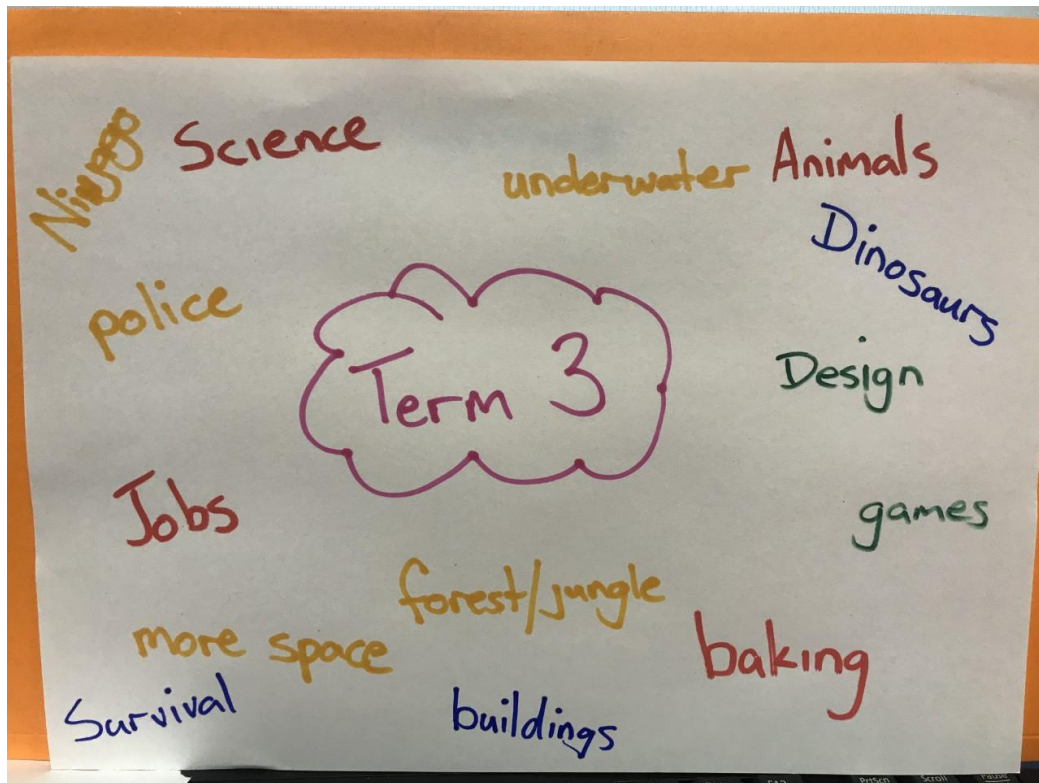 Ninjago
Science
underwater
Animals
Dinosaurs
police
Term 3
Design
Jobs
games
forest/jungle
more space
baking
Survival
buildings
PrtScn Scroll Pause